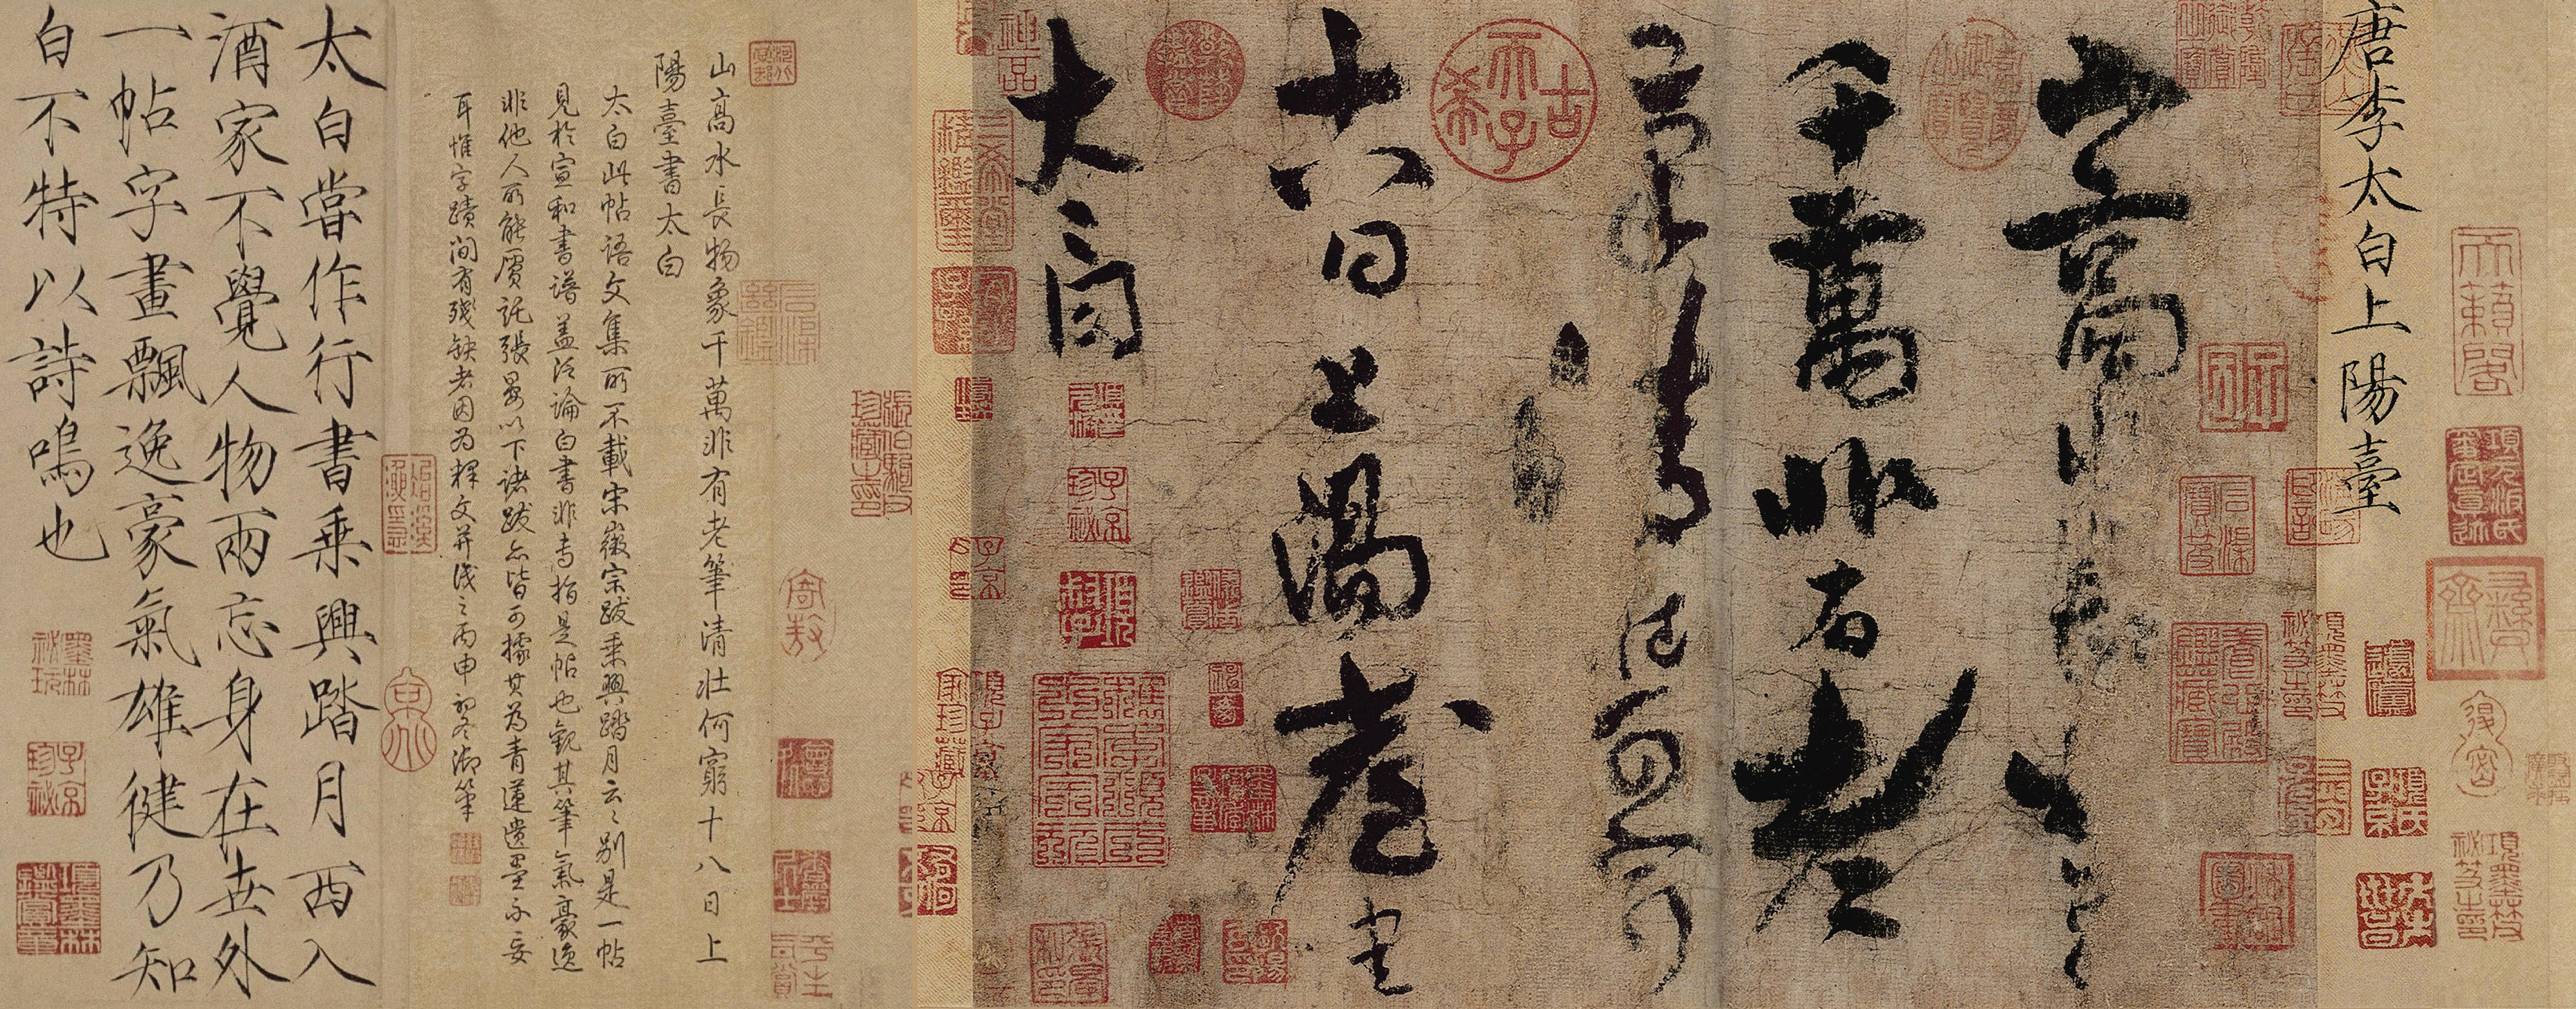 唐李太白上陽臺
山高水長物象
千萬非有老
筆清壯何窮
十八日上陽臺書
太白
山高水長物象千萬非有老筆清壯何窮十八日上
陽臺書太白
太白此帖語文集所不載宋徽宗跋乗興踏月云々別是一帖
見於宣和書譜蓋泛論白書非專指是帖也觀其筆氣豪逸
非他人所能贋託張晏以下諸跋亦皆可據其為青蓮遺墨不妄
耳惟字蹟間有殘缺者因為釋文并識之丙申初冬御筆
太白嘗作行書乗興踏月西入
酒家不覺人物兩忘身在世外
一帖字畫飄逸豪氣雄健乃知
白不特以詩鳴也
古希天子